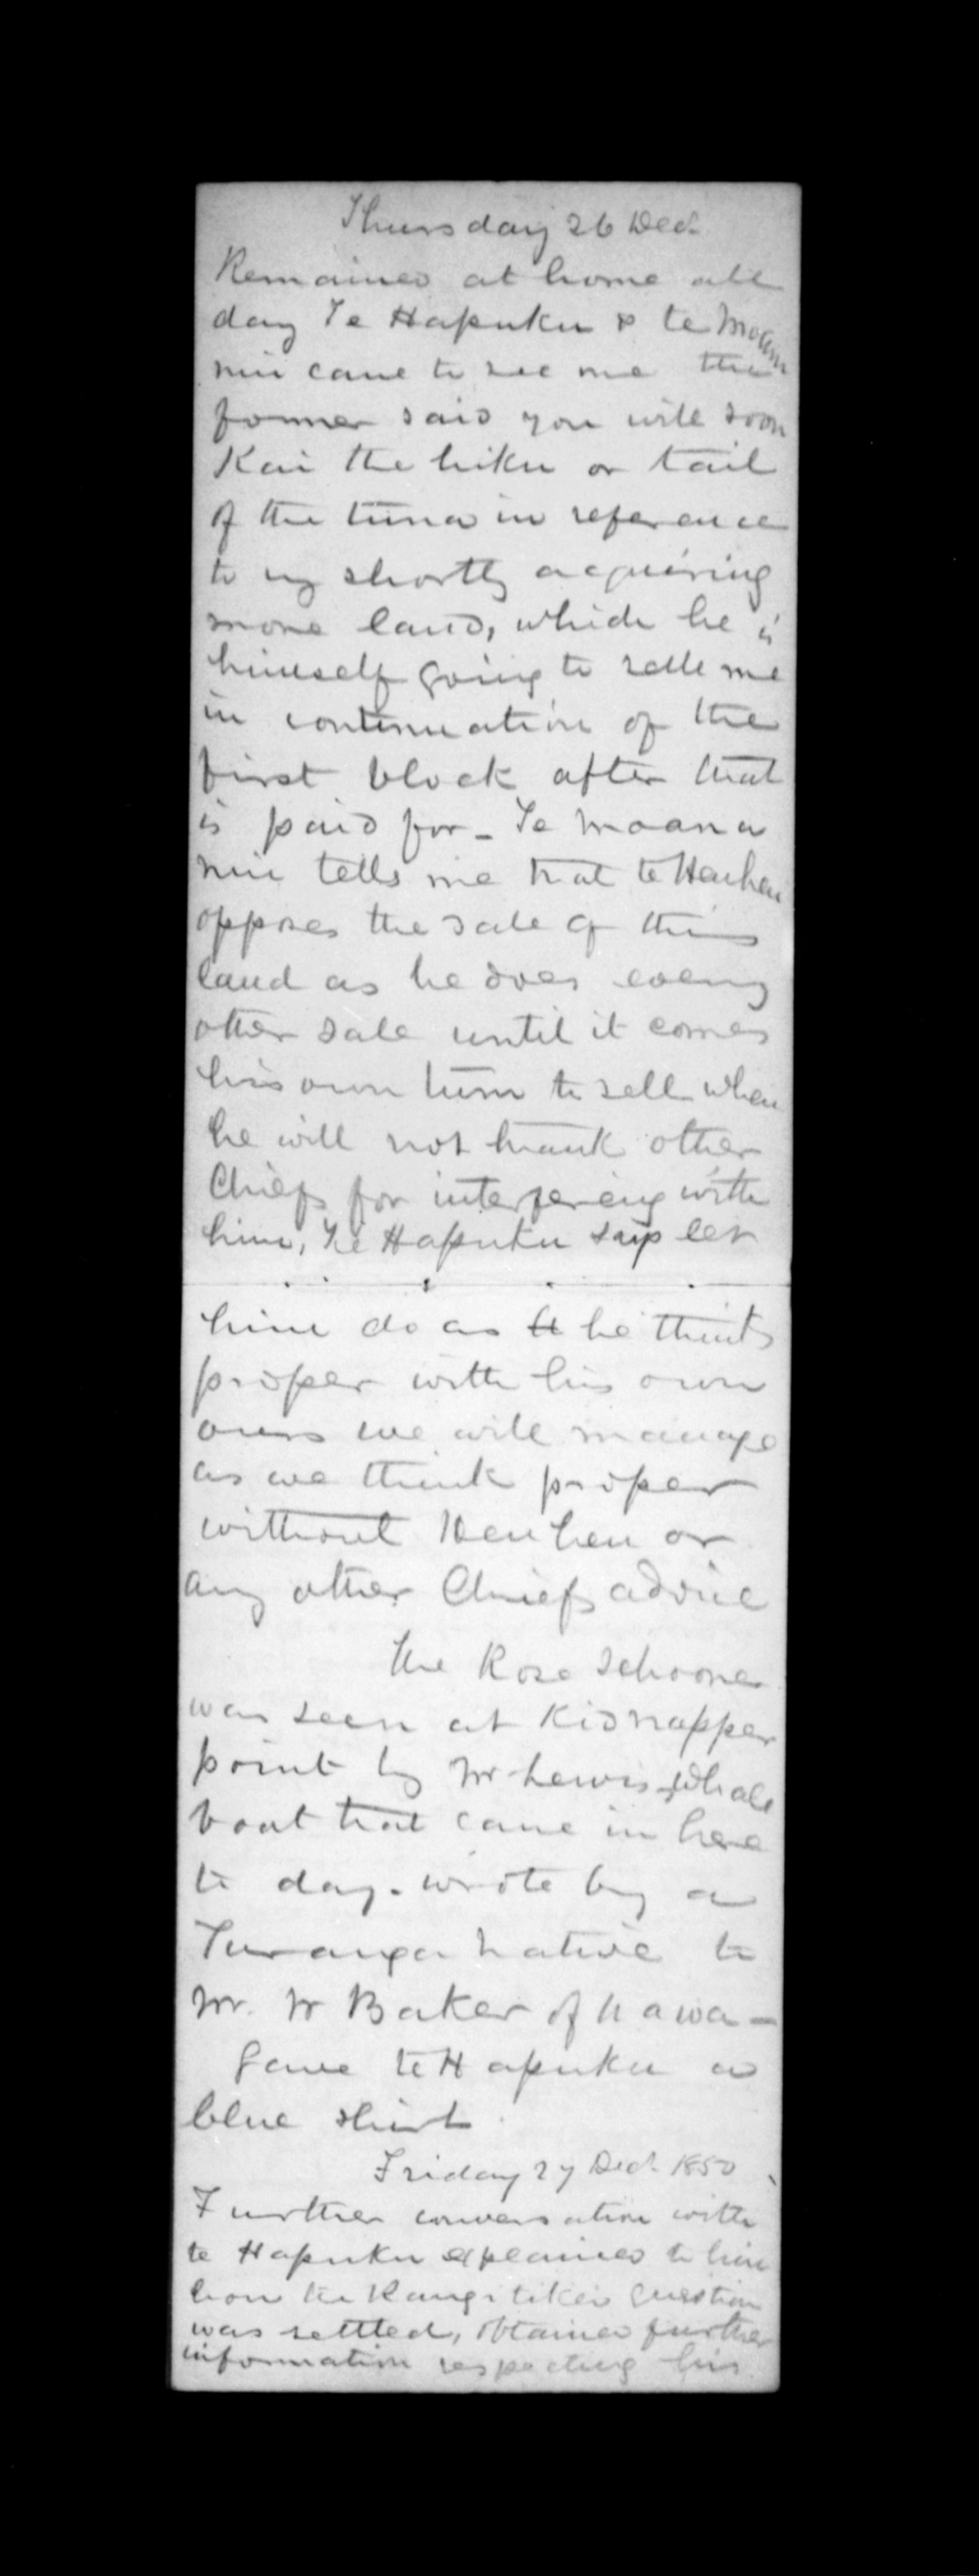 Thursday 26 Dec.
Remained at home all
day Te Hapuku & te Moana
nui came to see me the
former said you will soon
Kai the hiku or tail
of the tuna in reference
to my shortly acquiring
more land, which he is
himself going to selle me
in continuation of the
first block after that
is paid for - Te Moana
nui tells me that te Heuheu
opposes the sale of this
land as he does every
other sale until it comes
his own turn to sell when
he will not thank other
Chiefs for interfering with
him, Te Hapuku says let
him do as he thinks
proper with his own
ours we will manage
as we think proper
without Heuheu or
any other Chiefs advice
The Rose Schooner
was seen at Kidnapper
point by Mr Lewis Whale
boat that came in here
to day. wrote by a
Turanga native to
Mr. W Baker of
Gave te Hapuku a
blue shirt
Friday 27 Dec. 1850
Further conversation with
te Hapuku explained to him
how the Rangitikei question
was settled, obtained further
information respecting his